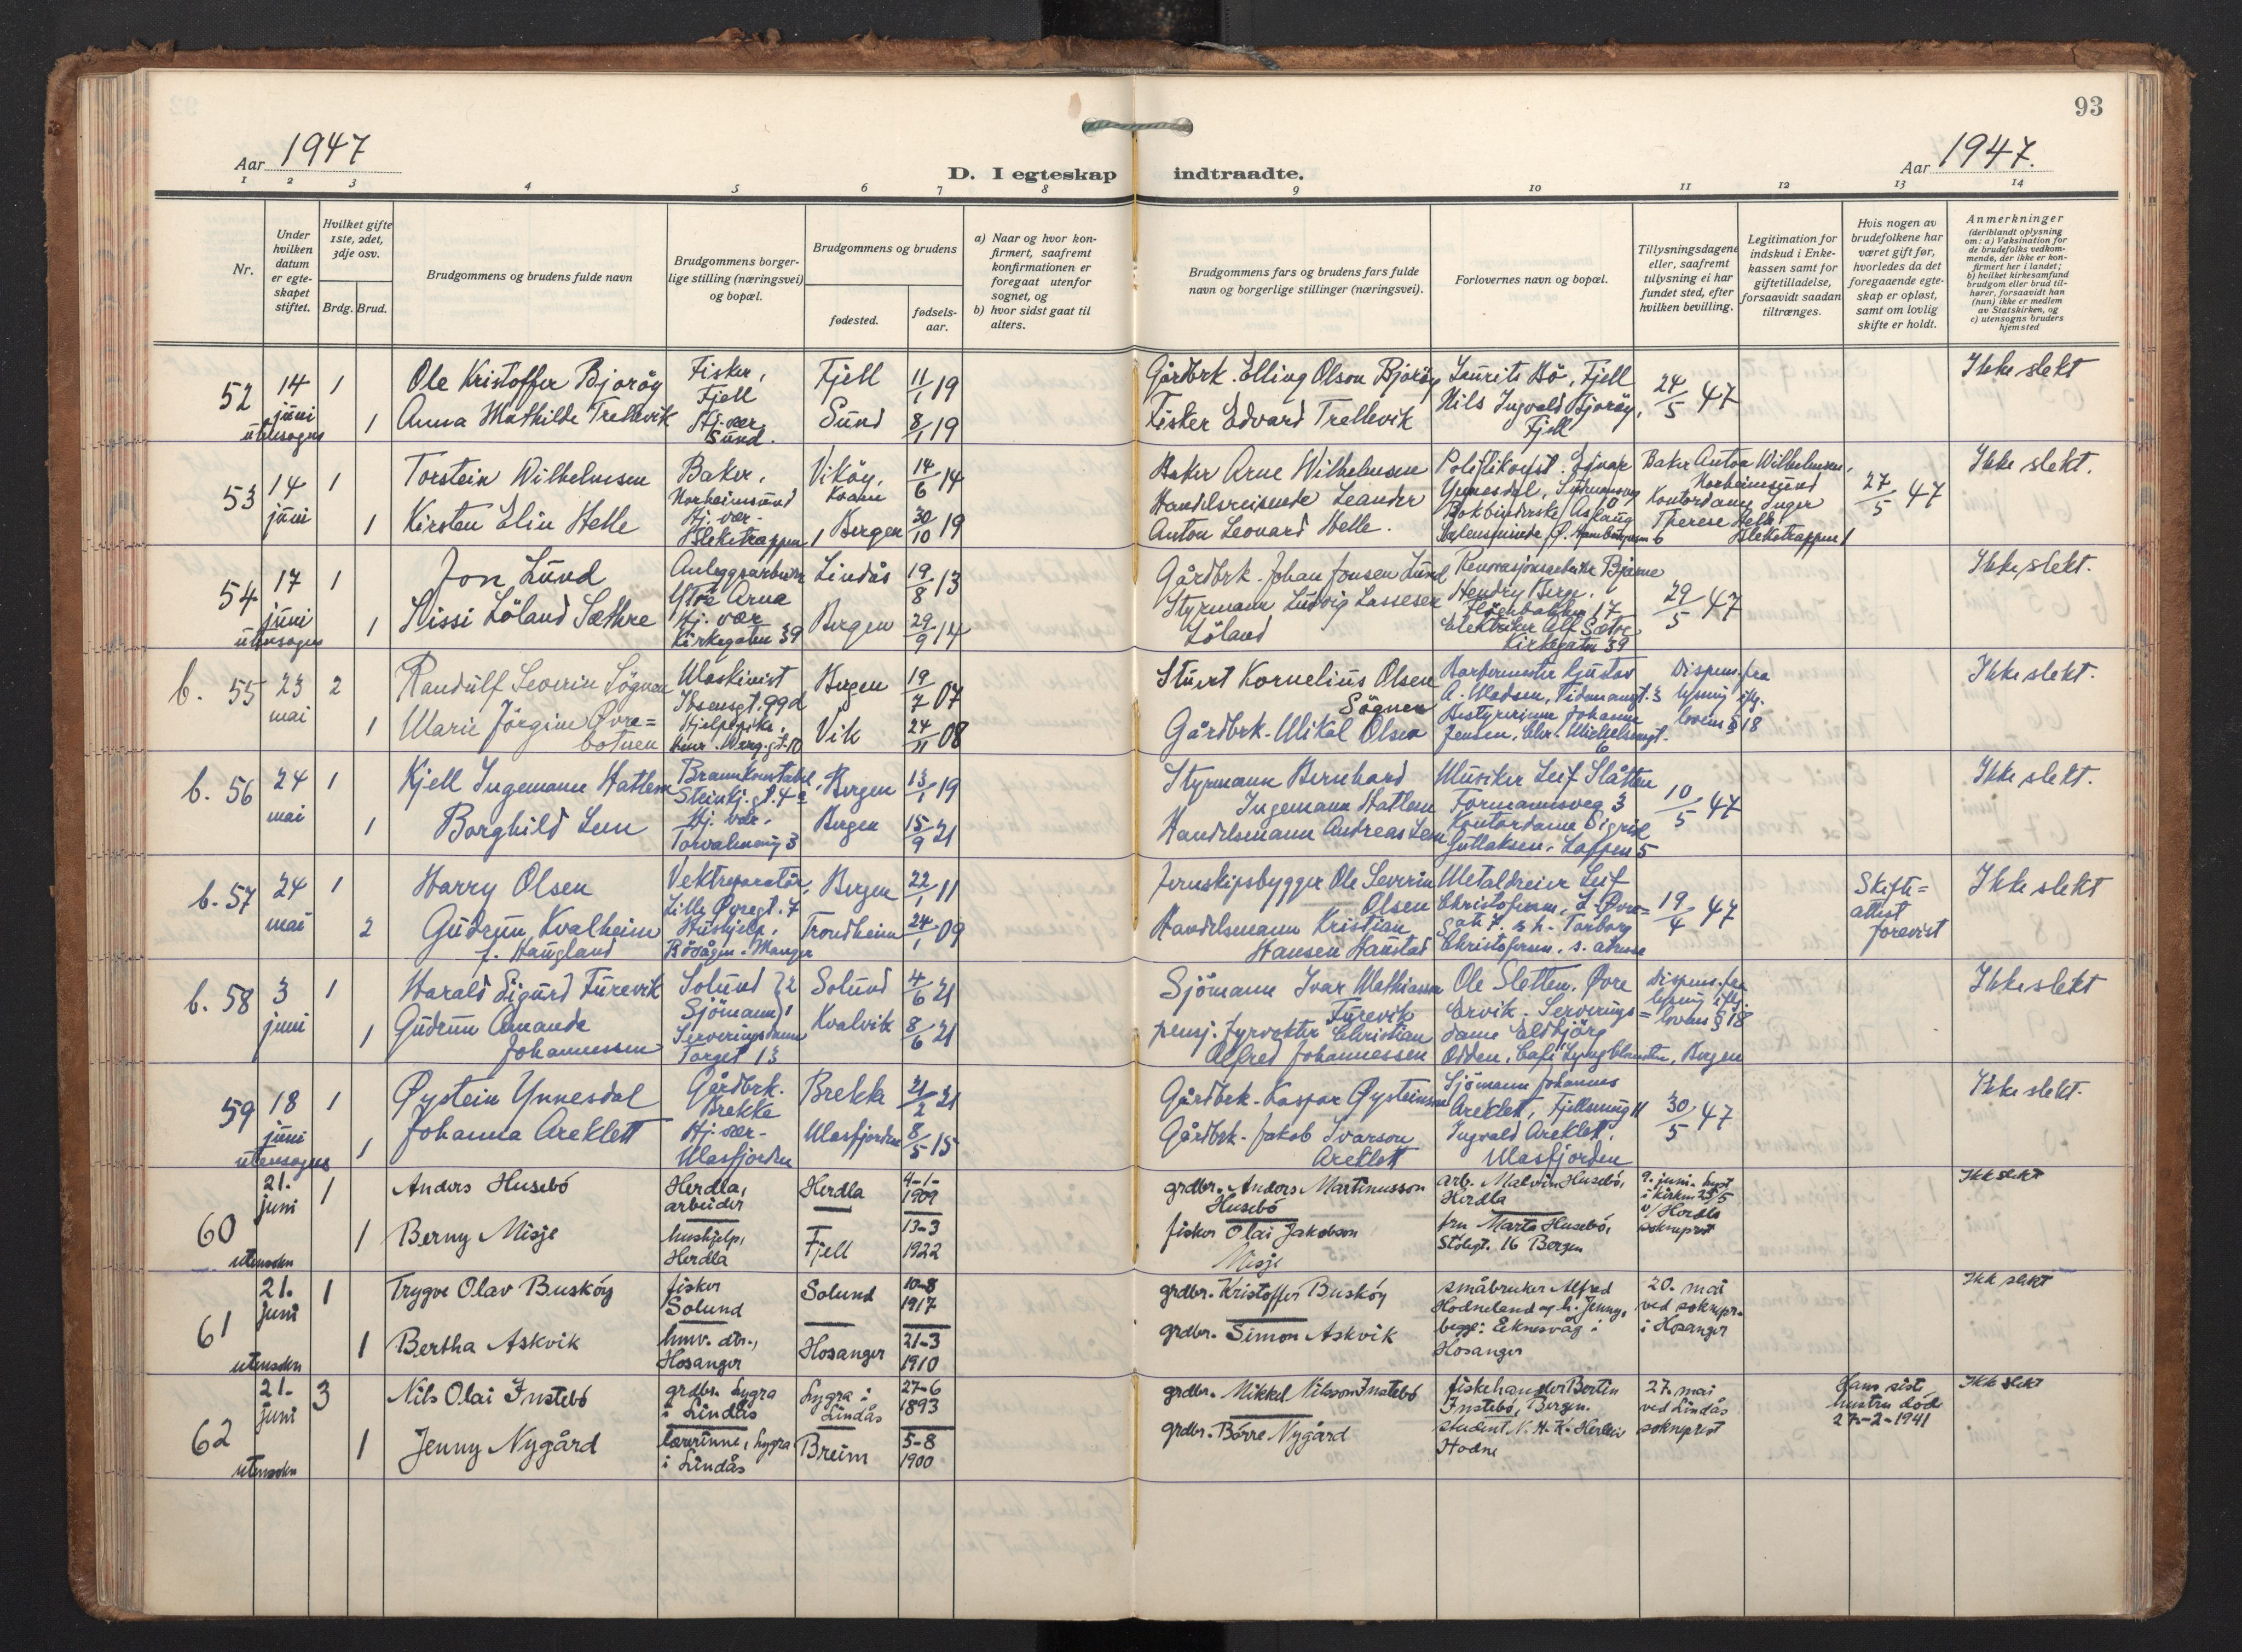 93
Aar 1947
Aar 1947.
D. I egteskap indtraadte.
1 2 3 4 5 6 7 8 9 10 11 12 13 14
Nr.
Under hvilken datum er egteskapet stiftet.
Hvilket gifte 1ste, 2det, 3dje osv.
Brdg. Brud.
Brudgommens og brudens fulde navn
Brudgommens borgerlige stilling (næringsvei) og bopæl.
Brudgommens og brudens
fødested.
fødselsaar.
a) Naar og hvor konfirmert, saafremt konfirmationen er foregaat utenfor sognet, og
b) hvor sidst gaat til alters.
Brudgommens fars og brudens fars fulde navn og borgerlige stillinger (næringsvei).
Forlovernes navn og bopæl.
Tillysningsdagene eller, saafremt tillysning ei har fundet sted, efter hvilken bevilling.
Legitimation for indskud i Enkekassen samt for giftetilladelse, forsaavidt saadan tiltrænges.
Hvis nogen av brudefolkene har været gift før, hvorledes da det foregaaende egteskap er opløst, samt om lovlig skifte er holdt.
Anmerkninger (deriblandt oplysning om: a) Vaksination for de brudefolks vedkommende, der ikke er konfirmert her i landet; b) hvilket kirkesamfund brudgom eller brud tilhører, forsaavidt han (hun) ikke er medlem av Statskirken, og c) utensogns bruders hjemsted
52 14 juni utensogns 1 Ole Kristoffer Bjorøy Fisker, Fjell Fjell 11/1 19 Gårdbrk. Elling Olson Bjorøy Laurits Bö, Fjell 24/5 47 Ikke slekt
1 Anna Mathilde Trellevik Hj. vær. Sund. Sund 8/1 19 Fisker Edvard Trellevik Nils Ingvald Bjorøy, Fjell
53 14 juni 1 Torstein Wilhelmsen Baker, Norheimsund Viköy, Kvam 14/6 14 Baker Arne Wilhelmsen Baker Anton Wilhelmsen, Norheimsund 27/5 47 Ikke slekt.
1 Kirsten Elin Helle Hj. vær. Bleketrappen 1 Bergen 30/10 19 Handelsreisende Leander Anton Leonard Helle. Kontordame Inger Therese Helle Blekstrappen 1
54 17 juni utensogns 1 Jon Lund Anleggsarbeider Ytre Arna Lindås 19/8 13 Gårdbrk. Johan Jonsen Lund Renovasjonsarbeider Bjarne Hendry Berge, 17 29/5 47 Ikke slekt.
1 Sissi Löland Sæthre Hj. vær Kirkegaten 39 Bergen 29/9 14 Styrmann Ludvig Lassesen Löland Elektriker Alf Sætre Kirkegaten 39
b. 55 23 mai 2 Randulf Severin Sögnen Maskinist Ibsensgt. 99d Bergen 19/7 07 Stuert Kornelius Olsen Sögnen Barbermester Gustav A. Madsen, Videmansgt. 3 Dispens. fra lysning iflg. lovens § 18 Ikke slekt.
1 Marie Jörgine Øvrebotnen Hjelpepike, Henr. Werg. gt. 10 Vik 24/11 08 Gårdbrk. Mikal Olsen Bestyrerinne Johanne Jensen, Chr. Michelsensgt. 6
b. 56 24 mai 1 Kjell Ingemann Hatlem Brannkonstabel, Steinkj. gt. 4a Bergen 13/1 19 Styrmann Bernhard Ingemann Hatlem Musiker Leif Slåtten Formannsveg 3 10/5 47 Ikke slekt.
1 Borghild Lem Hj. vær. Torvalmeng 3 Bergen 15/9 21 Handelsmann Andreas Lem Kontordame Sigrid Gutlaksen, Lappen 5
b. 57 24 mai 1 Harry Olsen Vektreparatör, Lille Øvregt. 7 Bergen 22/1 11 Jernskipsbygger Ole Severin Olsen Metaldreier Leif Christofersen, L. Øvregate 7. 19/4 47 Skifteattest forevist Ikke slekt
2 Gudrun Kvalheim f. Haugland Hushjelp, Bövågen. Manger Trondheim 24/1 09 Handelsmann Kristian Hansen Haustad Torborg Christofersen, s. adresse
b. 58 3 juni 1 Harald Sigurd Furevik Solund Sjömann Solund 4/6 21 Sjömann Ivar Mathiassen Furevik Ole Sletten, Øvre Ervik. Dispens. fra lysning iflg. lovens § 18 Ikke slekt
1 Gudrun Amanda Johannessen Serveringsdame Torget 13 Kvalvik 8/6 21 pensj. fyrvokter Christian Alfred Johannessen Serveringsdame Eldbjörg Odden, Café Lyngblomsten, Bergen
59 18 juni utensogns 1 Øystein Ynnesdal Gårdbrk. Brekke Brekke 21/2 21 Gårdbrk. Kaspar Øysteinson Sjömann Johannes Areklett, Fjellsmug 11 30/5 47 Ikke slekt.
1 Johanna Areklett Hj. vær. Masfjorden Masfjorden 8/5 15 Gårdbrk. Jakob Ivarson Areklett Ingvald Areklett, Masfjorden
60 21. juni utensokn 1 Anders Husebö Herdla, arbeider Herdla 4-1-1909 grdbr. Anders Martinusson Husebö arb. Malvin Husebö, Herdla 9. juni. lyst i kirken 25/5 v/ Herdla sokneprest Ikke slekt
1 Berny Misje hushjelp, Herdla Fjell 13-3 1922 fisker Olai Jakobson Misje fru Marta Husebö, Stölegt. 16 Bergen
61 21. juni utensokn 1 Trygve Olav Busköy fisker Solund Solund 10-8 1917 grdbr. Kristoffer Busköy småbruker Alfred Hodneland og h. Jenny, begge: Eknesvåg i Hosanger 20. mai ved soknepr. i Hosanger Ikke slekt
1 Bertha Askvik hmv. dtr., Hosanger Hosanger 21-3 1910 grdbr. Simon Askvik
62 21. juni utensokn 3 Nils Olai Instebö grdbr. Lygra i Lindås Lygra i Lindås 27-6 1893 grdbr. Mikkel Nilsson Instebö fiskehandler Bertin Instebö, Bergen. 27. mai ved Lindås sokneprest Hans sist hustru död 27-2-1941 Ikke slekt
1 Jenny Nygård lærerinne, Lygra i Lindås Breim 5-8 1900 grdbr. Börre Nygård student N. H. K. Hodne